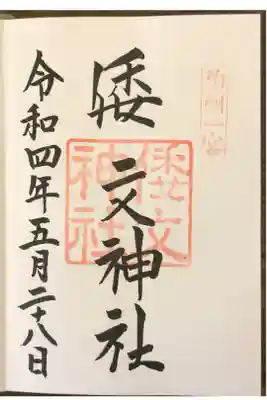 伯州一宮
倭文神社
倭文
神社
令和四年五月二十八日